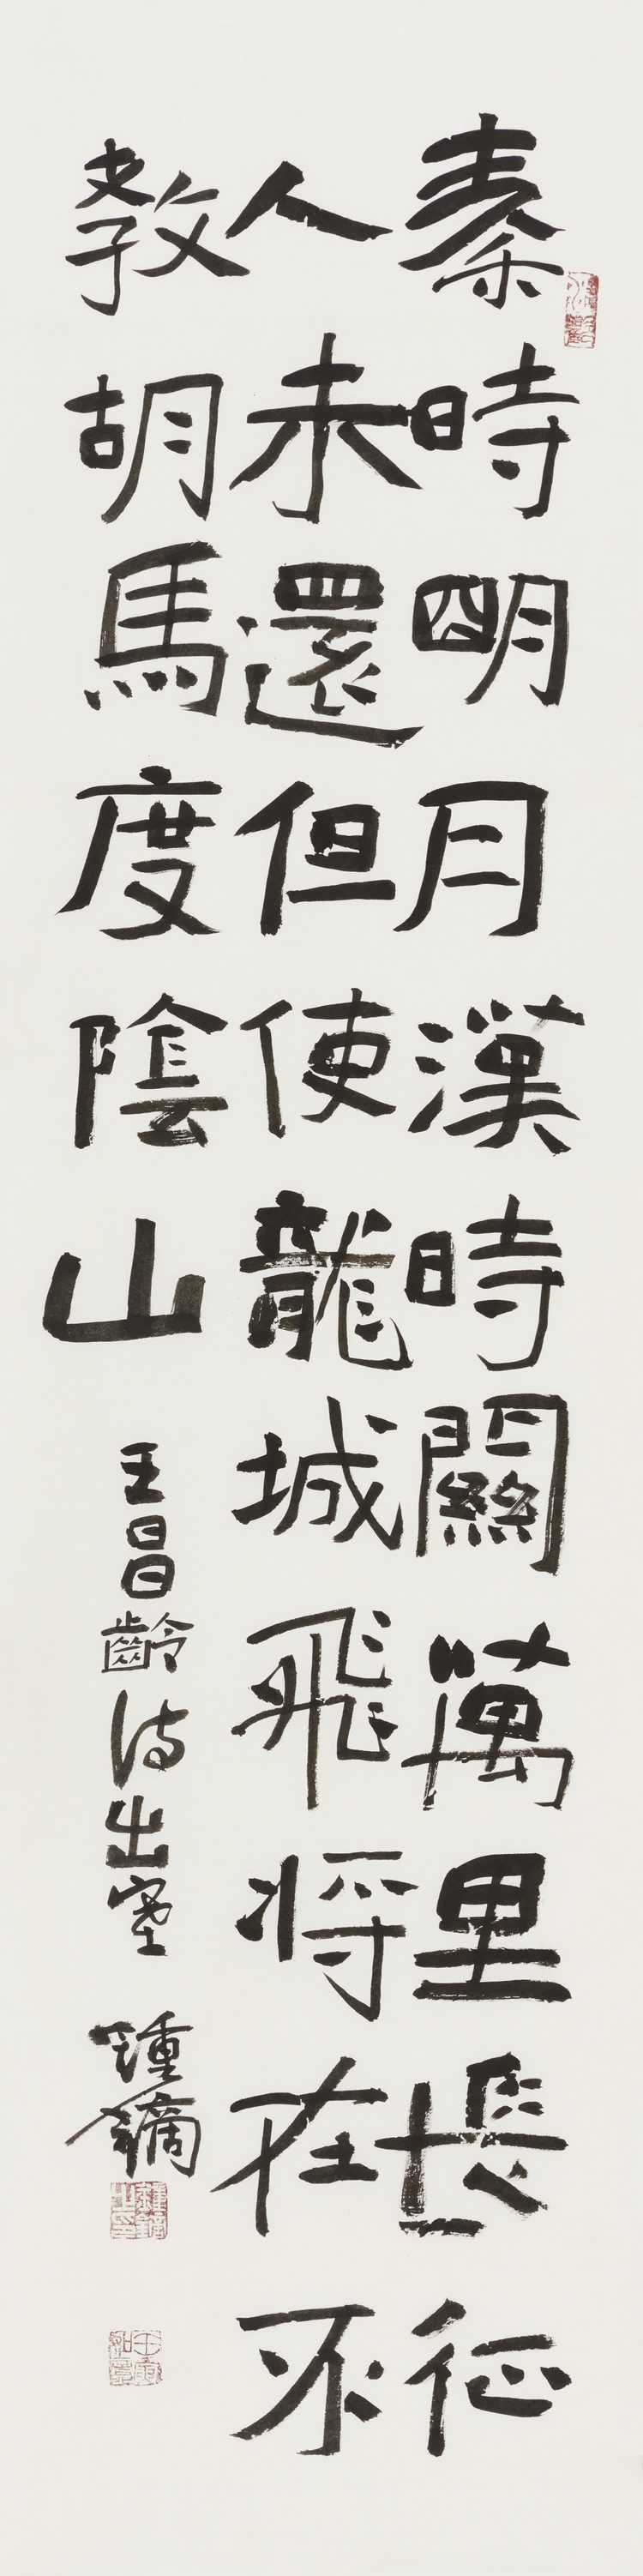 秦時明月漢時關萬里長征
人未還但使龍城飛将在不
教胡馬度陰山
王昌齡詩出塞 鍾鏑